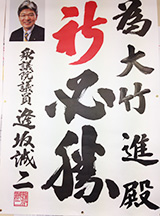 為大竹進殿
祈必勝
衆議院議員 逢坂誠二